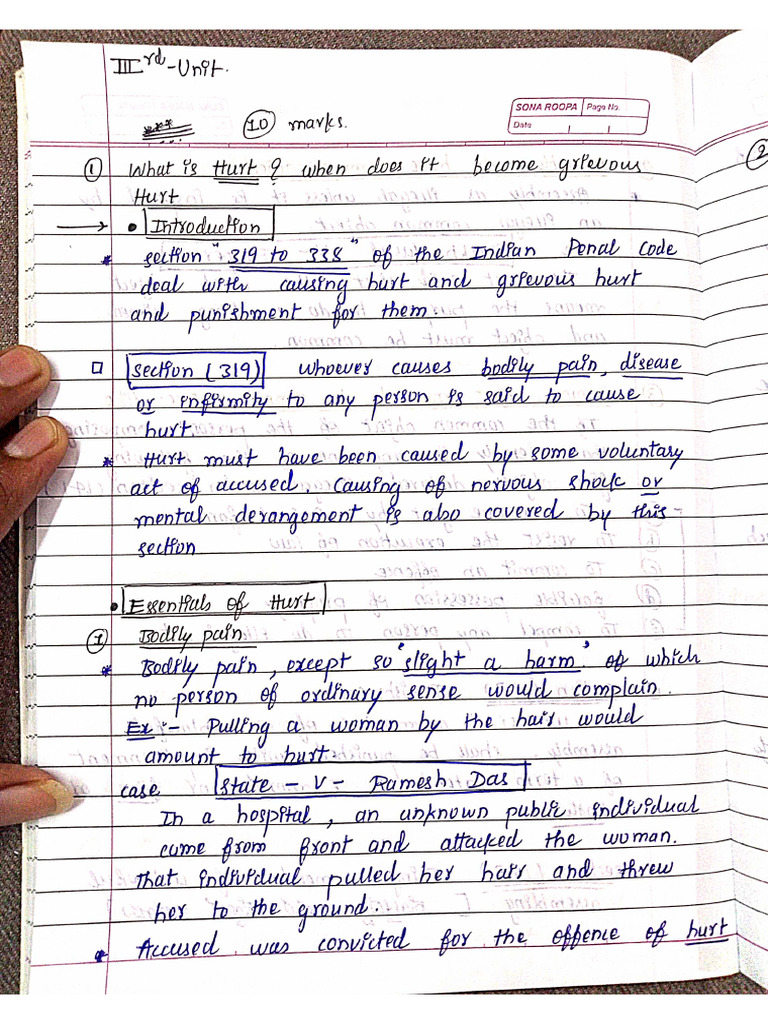 IIIrd - Unit.
SONA ROOPA Page No.
Date
*** 10 marks.
2
① What is Hurt ? when does it become grievous
Hurt
→ • Introduction
* section "319 to 338" of the Indian Penal Code
deal with causing hurt and grievous hurt
and punishment for them.
□ Section (319) whoever causes bodily pain, disease
or infirmity to any person is said to cause
hurt.
* Hurt must have been caused by some voluntary
act of accused. Causing of nervous shock or
mental derangement is also covered by this
section
• Essentials of Hurt
① Bodily pain
* Bodily pain, except so 'slight a harm' of which
no person of ordinary sense would complain.
Ex :- Pulling a woman by the hair would
amount to hurt.
case State - V - Ramesh Das
In a hospital, an unknown public individual
came from front and attacked the woman.
that individual pulled her hair and threw
her to the ground.
* Accused was convicted for the offence of hurt